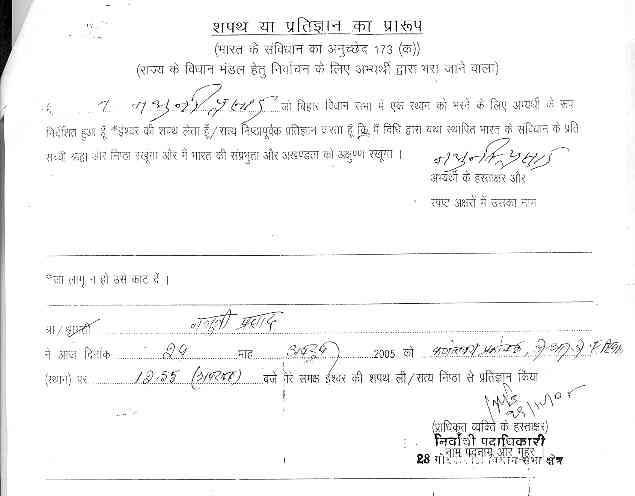 शपथ या प्रतिज्ञान का प्रारूप
(भारत के संविधान का अनुच्छेद 173 (क))
(राज्य के विधान मंडल हेतु निर्वाचन के लिए अभ्यर्थी द्वारा भरा जाने वाला)
जो बिहार विधान सभा में एक स्थान को भरने के लिए अभ्यर्थी के रूप
निर्देशित हुआ हूँ *ईश्वर की शपथ लेता हूँ/सत्य निष्ठापूर्वक प्रतिज्ञान करता हूँ कि मैं विधि द्वारा यथा स्थापित भारत के संविधान के प्रति
सच्ची श्रद्धा और निष्ठा रखूंगा और मैं भारत की संप्रभुता और अखण्डता को अक्षुण्ण रखूगा ।
अभ्यर्थी के हस्ताक्षर और
स्पष्ट अक्षरों में उसका नाम
*जो लागू न हो उसे काट दें ।
श्री/श्रीमती प्रसाद
ने आज दिनांक 29 माह 2005 को
(स्थान) पर 12.55 बजे मेरे समक्ष ईश्वर की शपथ ली/सत्य निष्ठा से प्रतिज्ञान किया
(प्राधिकृत व्यक्ति के हस्ताक्षर)
निर्वाची पदाधिकारी
नाम पदनाम और मुहर
28 विधान सभा क्षेत्र